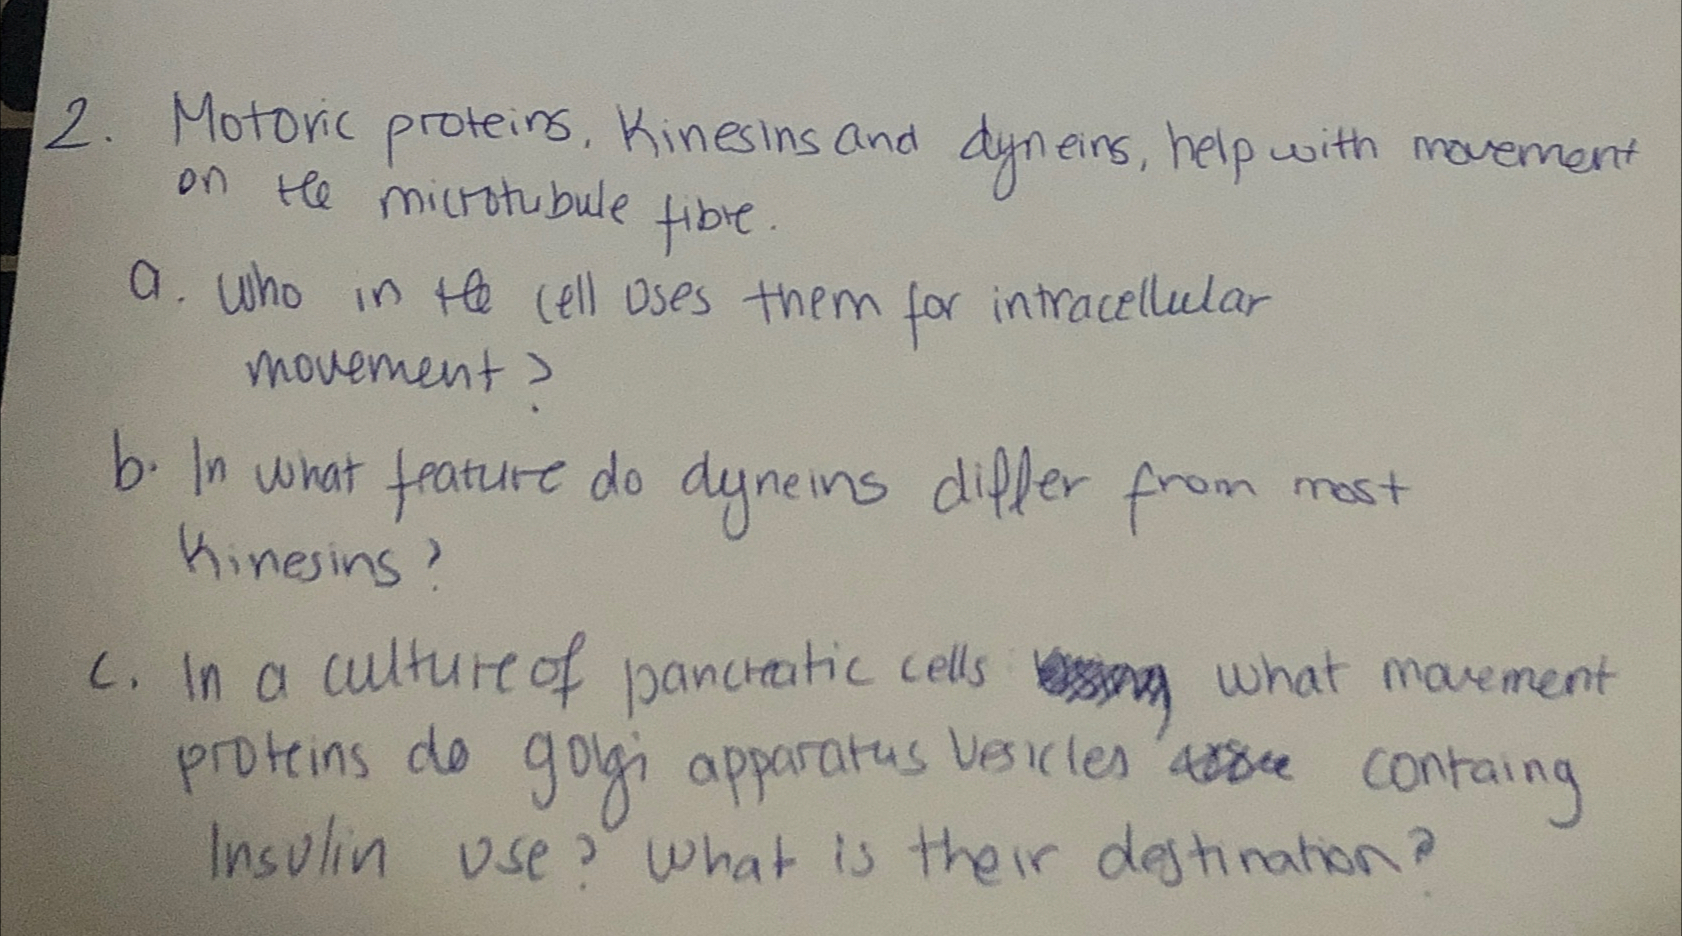 2. Motoric proteins, Kinesins and dyneins, help with movement
on the microtubule fibre.
a. Who in the cell uses them for intracellular
movement?
b. In what feature do dyneins differ from most
Kinesins?
c. In a culture of pancreatic cells what movement
proteins do golgi apparatus vesicles containg
Insulin use? What is their destination?